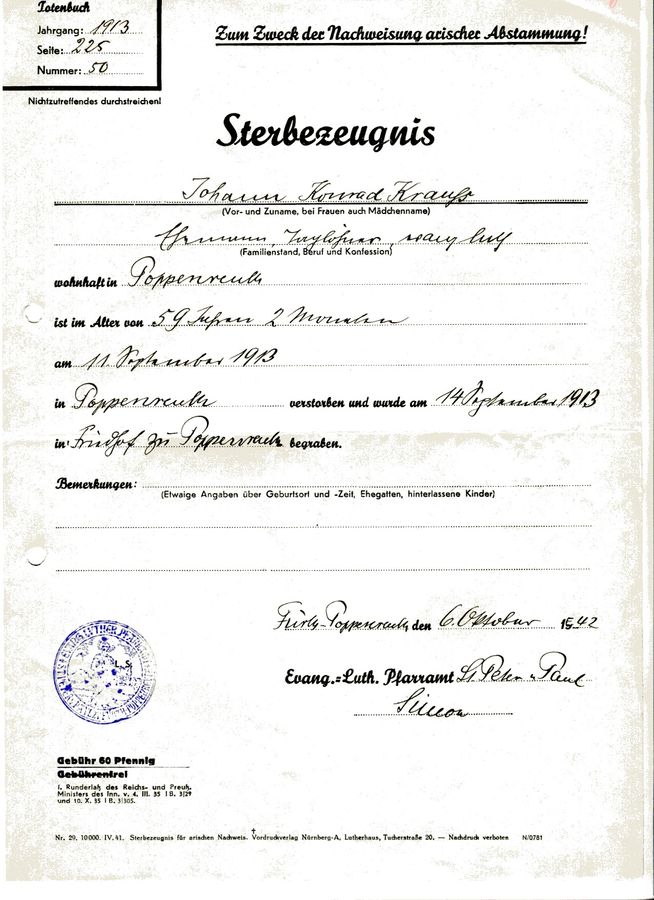 Totenbuch
Jahrgang: 1913
Seite: 225
Nummer: 50
Zum Zweck der Nachweisung arischer Abstammung!
Nichtzutreffendes durchstreichen!
Sterbezeugnis
Johann Konrad Krauß
(Vor- und Zuname, bei Frauen auch Mädchenname)
Ehemann, Taglöhner, evang luth
(Familienstand, Beruf und Konfession)
wohnhaft in Poppenreuth
ist im Alter von 59 Jahren 2 Monaten
am 11. September 1913
in Poppenreuth verstorben und wurde am 14 September 1913
in Friedhof zu Poppenreuth begraben.
Bemerkungen:
(Etwaige Angaben über Geburtsort und -Zeit, Ehegatten, hinterlassene Kinder)
Fürth-Poppenreuth den 6. Oktober 1942
Evang.=Luth. Pfarramt St. Peter u Paul
Simon
L.S.
Gebühr 60 Pfennig
Gebührenfrei
l. Runderlaß des Reichs- und Preuß.
Ministers des Inn. v. 4. III. 35 I B. 3/29
und 10. X. 35 I B. 3/305.
Nr. 29. 10000. IV. 41. Sterbezeugnis für arischen Nachweis. Vordruckverlag Nürnberg-A, Lutherhaus, Tucherstraße 20. — Nachdruck verboten N/0781